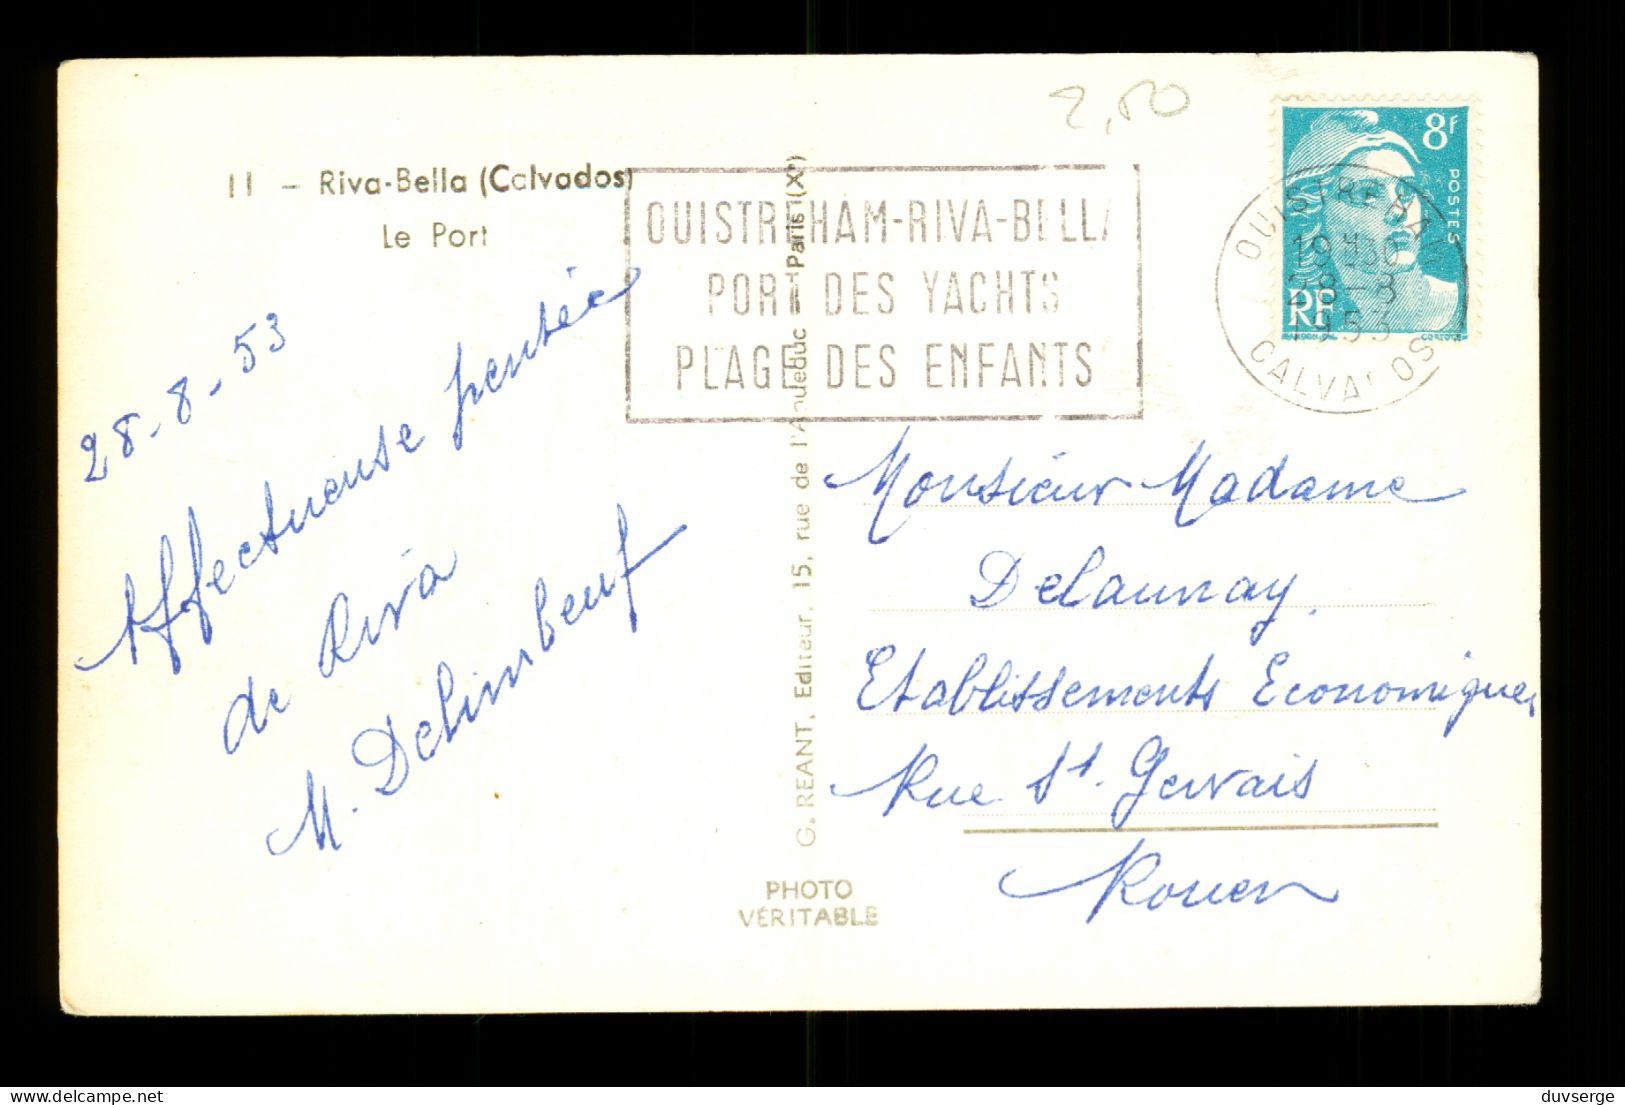 2,50
11 - Riva-Bella (Calvados)
Le Port
OUISTREHAM-RIVA-BELLA
PORT DES YACHTS
PLAGE DES ENFANTS
8F
POSTES
RF
OUISTREHAM
19H30
28-8
1953
CALVADOS
28-8-53
Affectueuse pensée
de Riva
M. Delimbeuf
G. REANT, Editeur. 15, rue de l'Aqueduc Paris (Xe)
PHOTO
VÉRITABLE
Monsieur Madame
Delaunay
Etablissements Economiques
Rue St. Gervais
Rouen
delcampe.net
duvserge